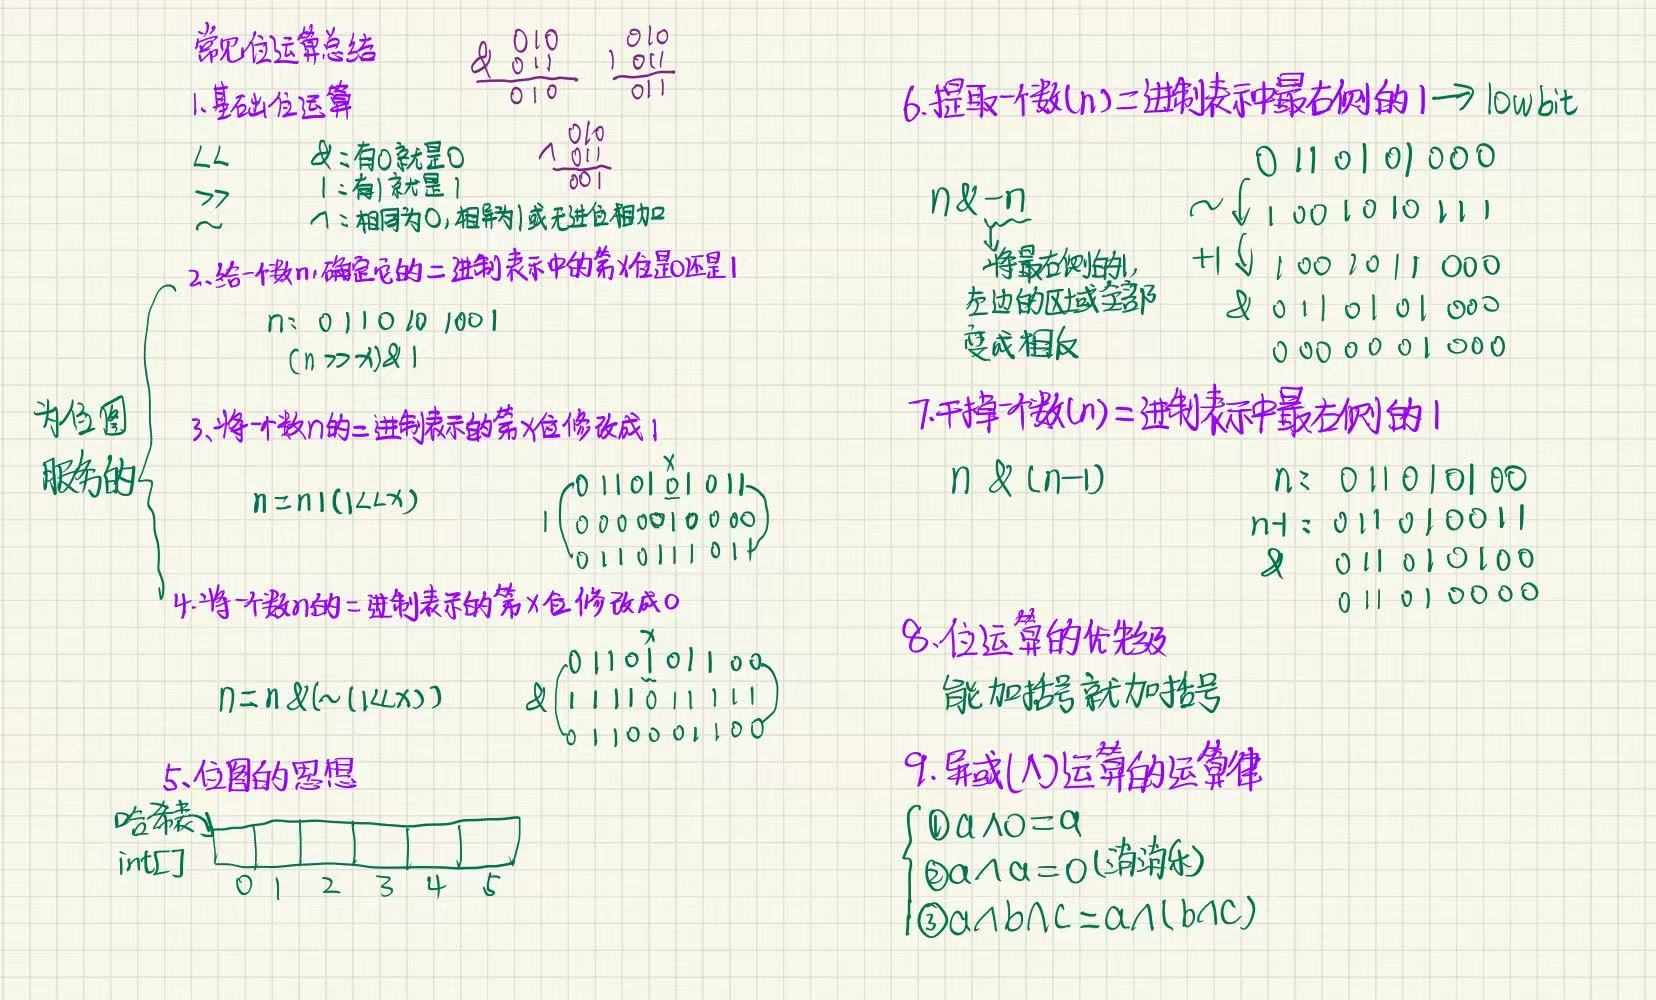 常见位运算总结
010
& 011
010
010
| 011
011
1.基础位运算
010
^ 011
001
<< &:有0就是0
>> |:有1就是1
~ ^:相同为0,相异为1或无进位相加
2、给一个数n,确定它的二进制表示中的第x位是0还是1
n: 0110101001
(n>>x)&1
为位图
服务的
3、将一个数n的二进制表示的第x位修改成1
n=n|(1<<x)
x
0110101011
| 0000010000
0110111011
4.将一个数n的二进制表示的第x位修改成0
n=n&(~(1<<x))
x
0110101100
& 1111011111
0110001100
5、位图的思想
哈希表
int[]
0 1 2 3 4 5
6.提取一个数(n)二进制表示中最右侧的1→lowbit
n&-n
将最右侧的1,
左边的区域全部
变成相反
0110101000
~ 1001010111
+1 1001011000
& 0110101000
0000001000
7.干掉一个数(n)二进制表示中最右侧的1
n&(n-1)
n: 011010100
n-1: 011010011
& 011010100
011010000
8、位运算的优先级
能加括号就加括号
9.异或(^)运算的运算律
①a^0=a
②a^a=0(消消乐)
③a^b^c=a^(b^c)